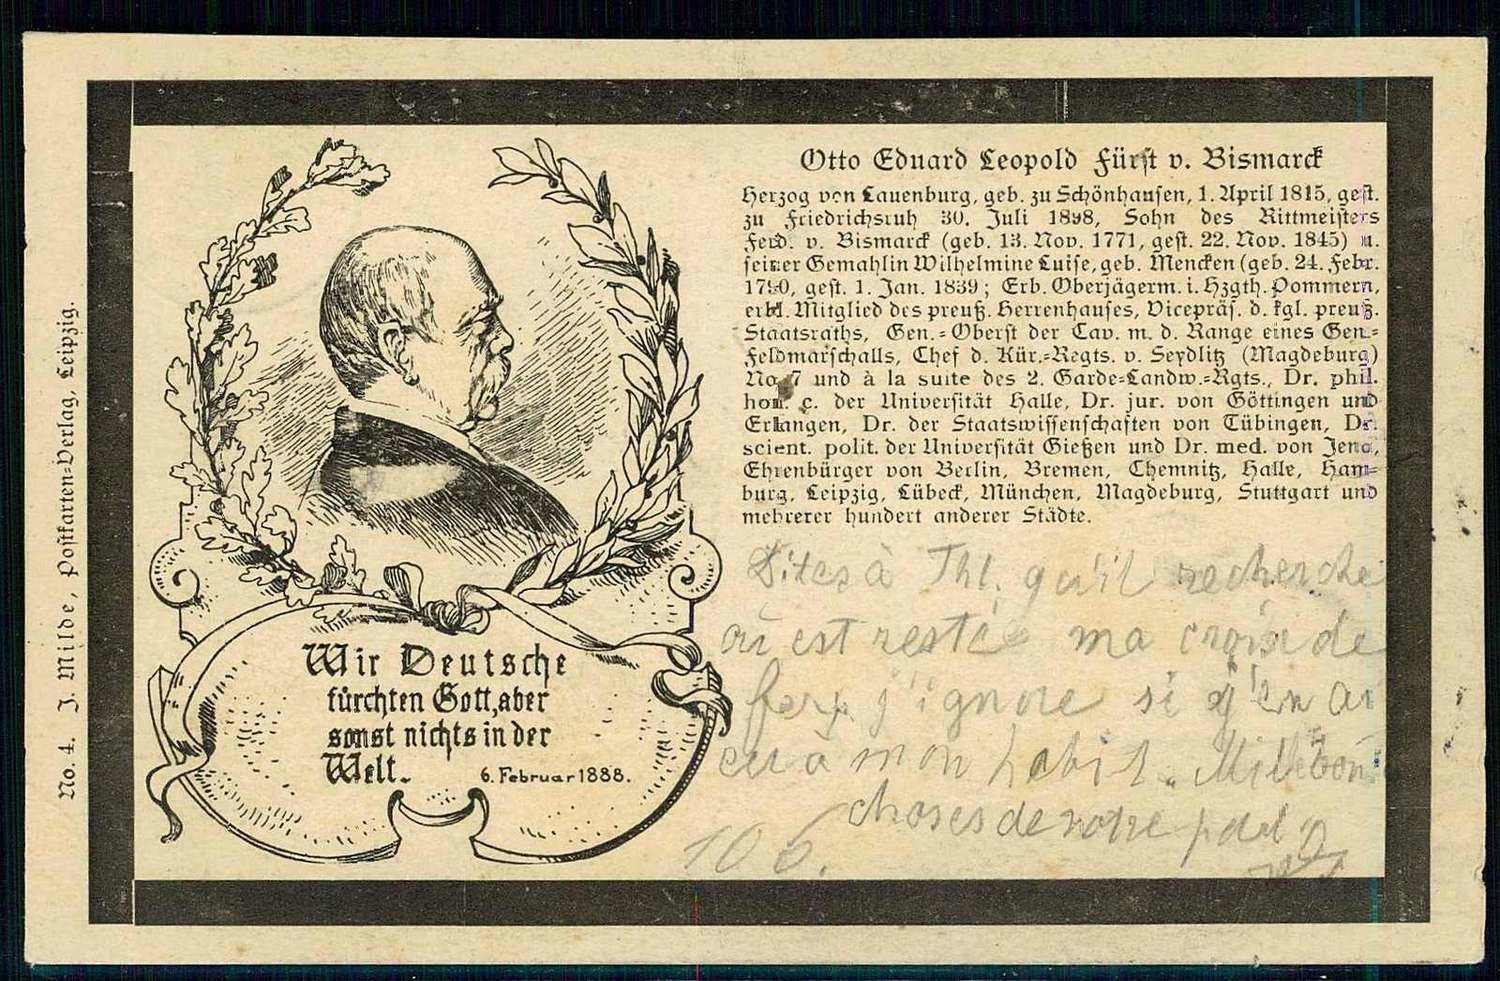 Otto Eduard Leopold Fürst v. Bismarck
Herzog von Lauenburg, geb. zu Schönhausen, 1. April 1815, gest.
zu Friedrichsruh 30. Juli 1898, Sohn des Rittmeisters
Ferd. v. Bismarck (geb. 13. Nov. 1771, gest. 22. Nov. 1845) u.
seiner Gemahlin Wilhelmine Luise, geb. Mencken (geb. 24. Febr.
1790, gest. 1. Jan. 1839; Erb. Oberjägerm. i. Hzgth. Pommern,
erbl. Mitglied des preuß. Herrenhauses, Vicepräs. d. kgl. preuß.
Staatsraths, Gen.-Oberst der Cav. m. d. Range eines Gen.-
Feldmarschalls, Chef d. Kür.-Regts. v. Seydlitz (Magdeburg)
No. 7 und à la suite des 2. Garde-Landw.-Rgts., Dr. phil.
hon. c. der Universität Halle, Dr. jur. von Göttingen und
Erlangen, Dr. der Staatswissenschaften von Tübingen, Dr.
scient. polit. der Universität Gießen und Dr. med. von Jena,
Ehrenbürger von Berlin, Bremen, Chemnitz, Halle, Ham-
burg, Leipzig, Lübeck, München, Magdeburg, Stuttgart und
mehrerer hundert anderer Städte.
Dites à Th. qu'il recherche
où est restée ma croix de
fer, j'ignore si j'en ai
eu à mon habit. Mille bon
choses de notre part
10 6.
Wir Deutsche
fürchten Gott, aber
sonst nichts in der
Welt.
6. Februar 1888.
No. 4. J. Milde, Postkarten-Verlag, Leipzig.